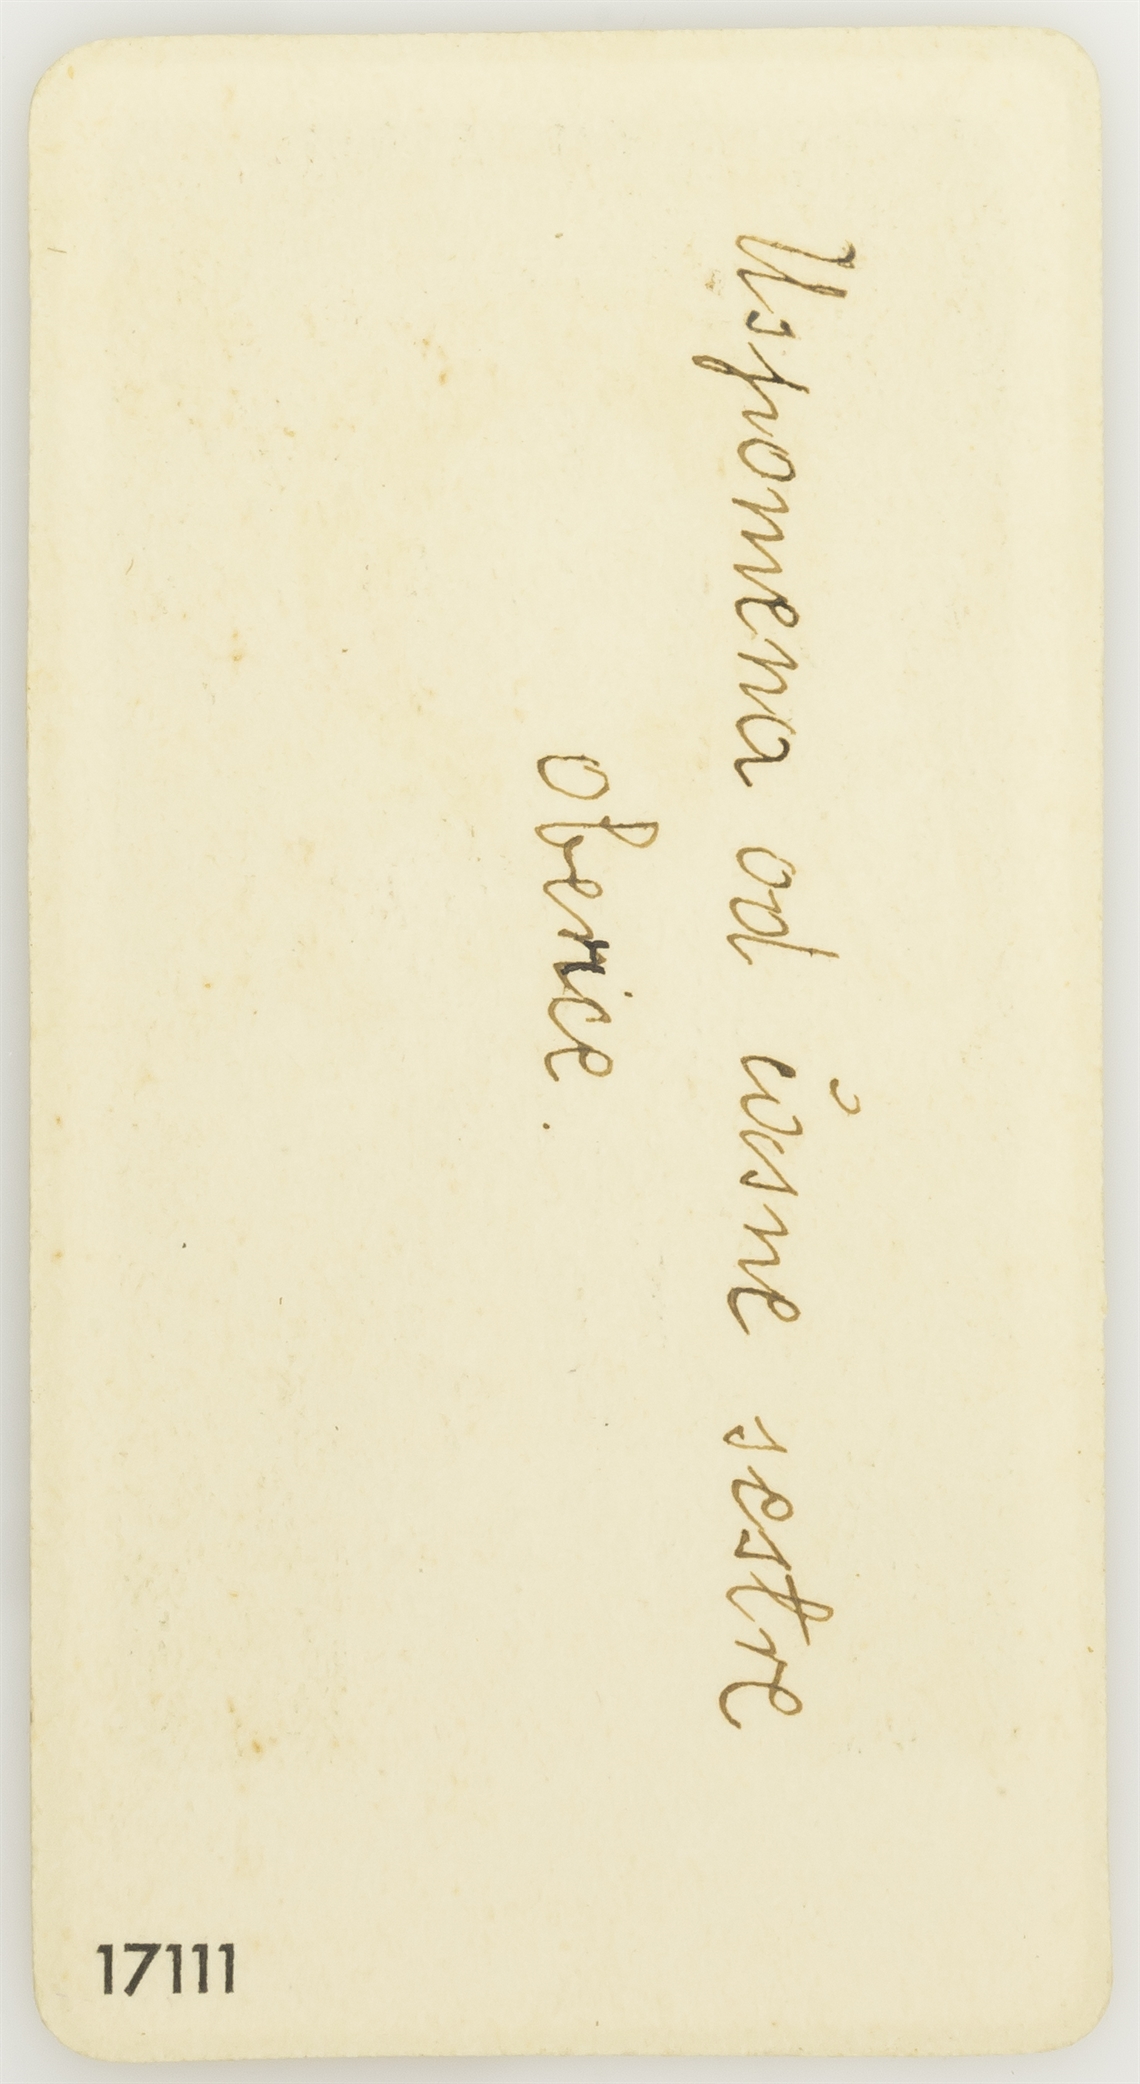 Uspomena od časne sestre
oberice.
17111